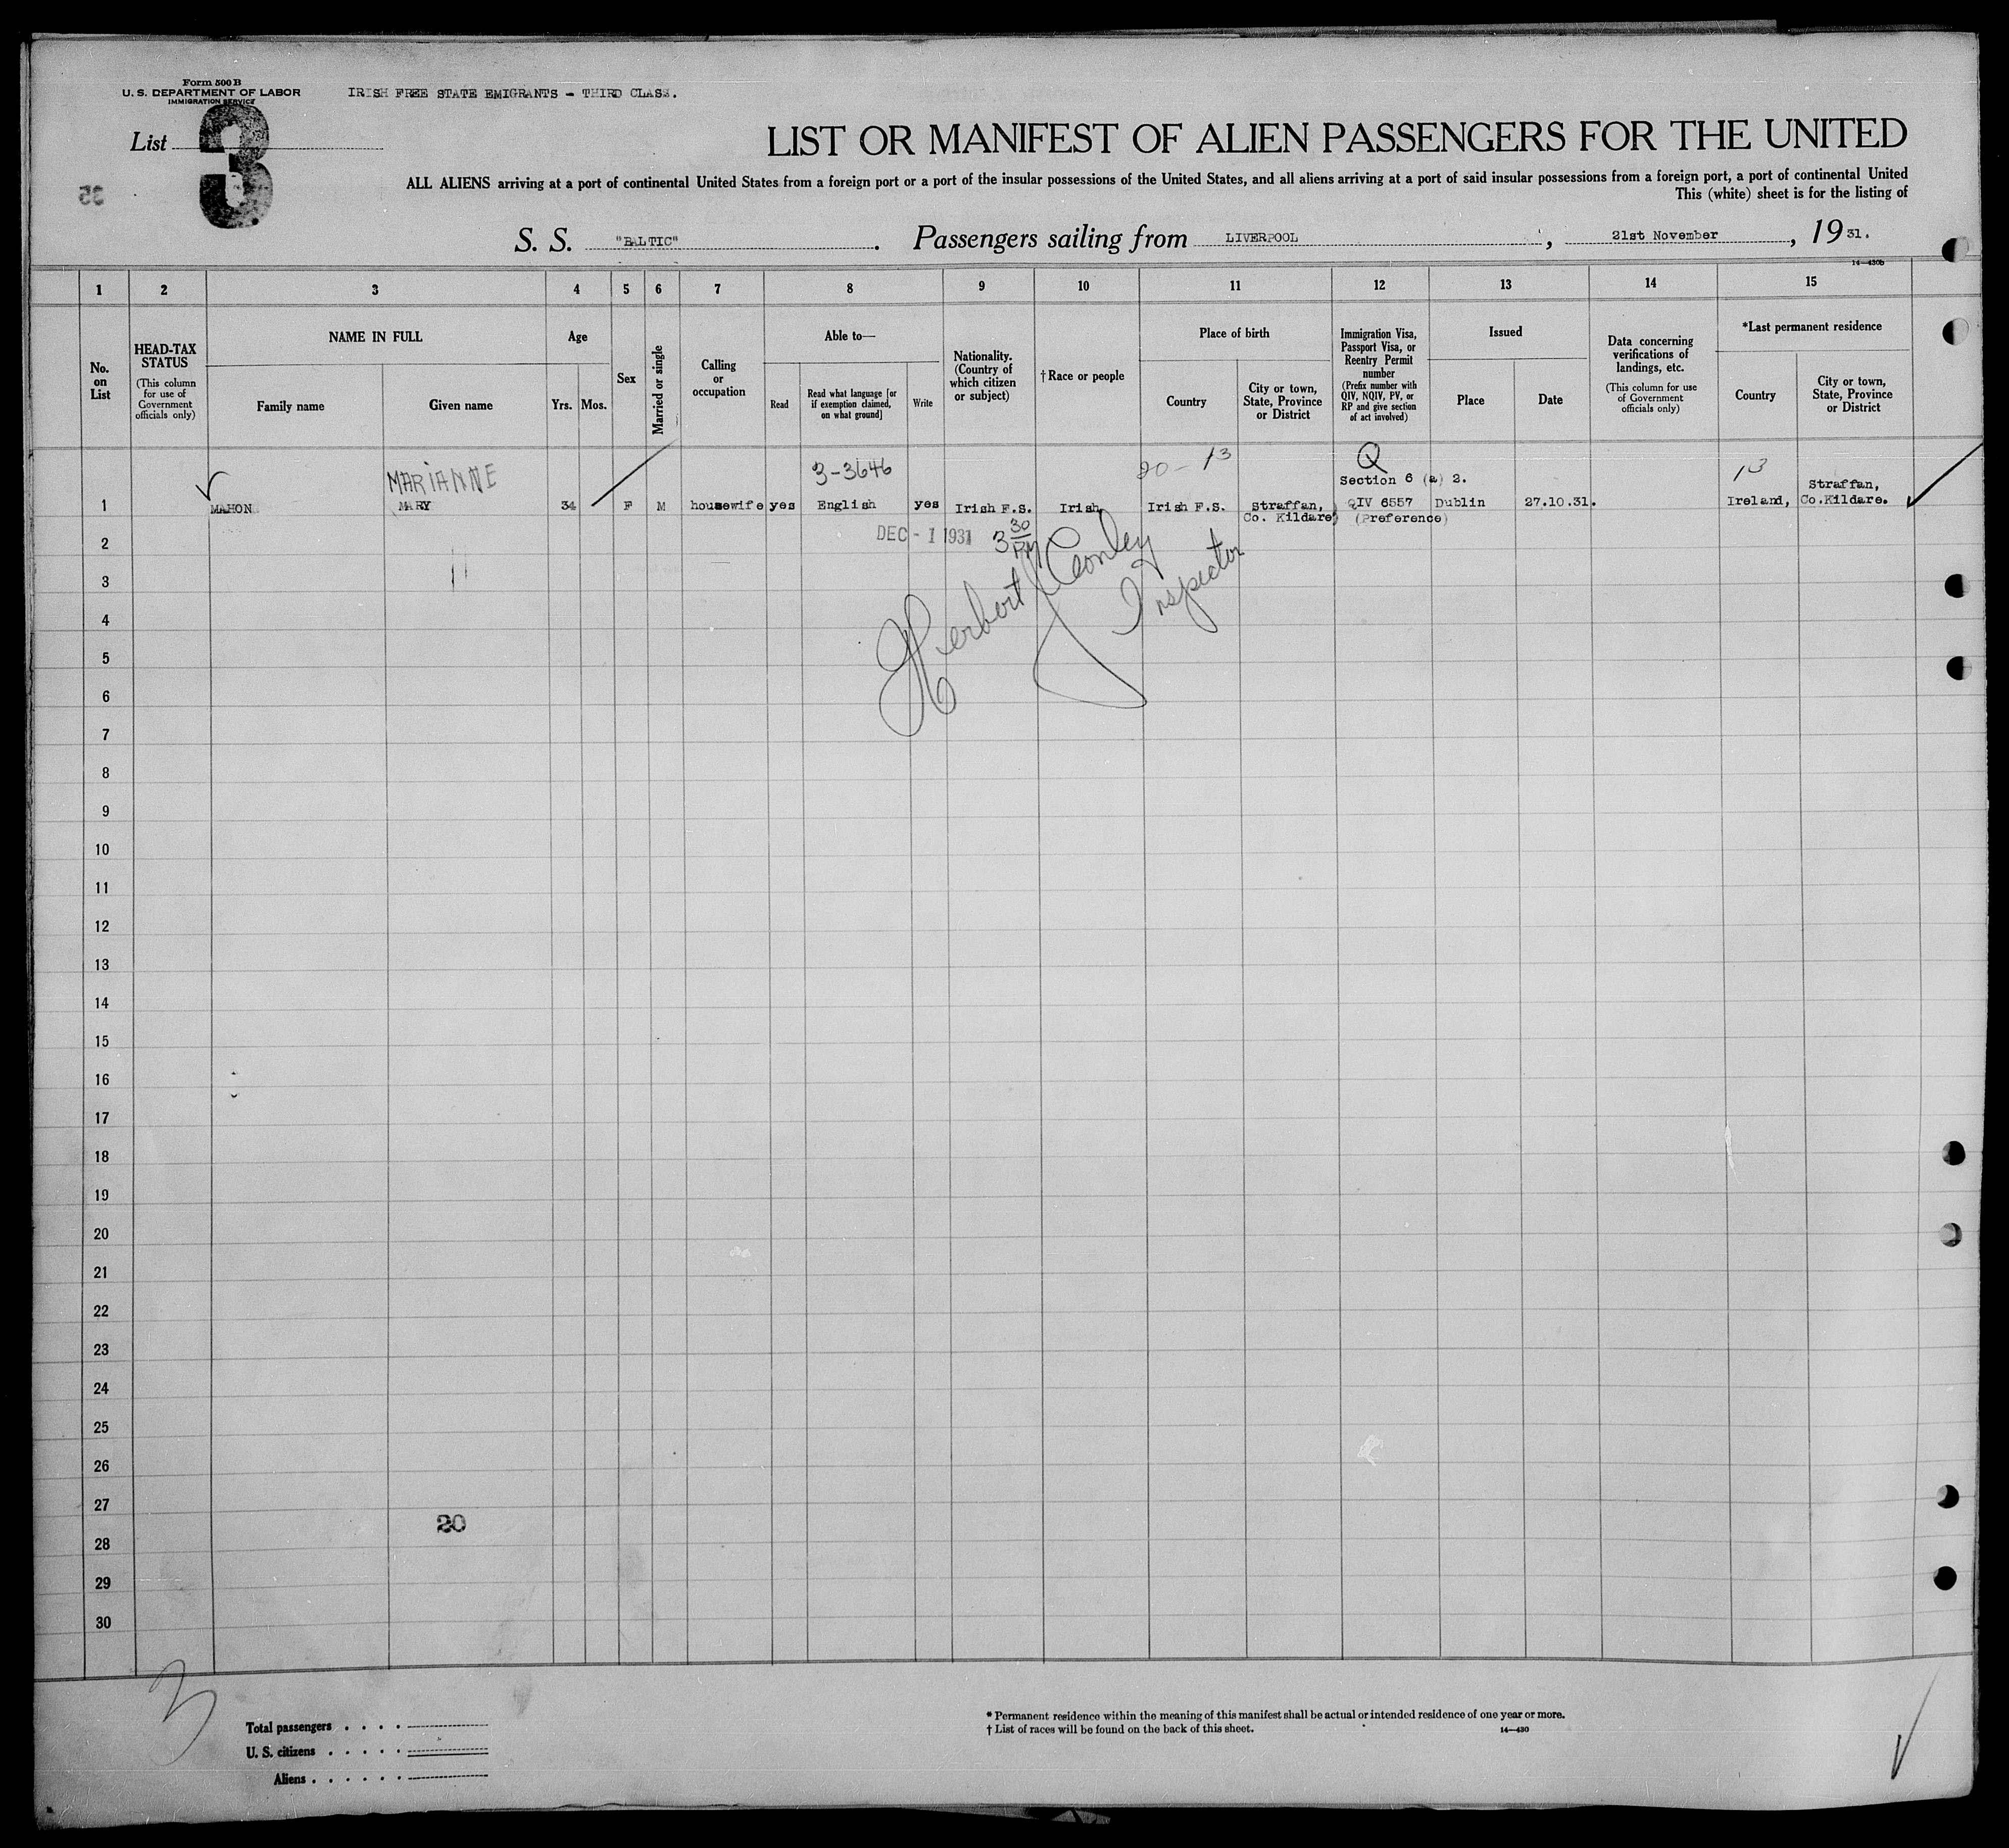 Form 500 B
U. S. DEPARTMENT OF LABOR
IMMIGRATION SERVICE
IRISH FREE STATE EMIGRANTS - THIRD CLASS.
List 3
35
LIST OR MANIFEST OF ALIEN PASSENGERS FOR THE UNITED
ALL ALIENS arriving at a port of continental United States from a foreign port or a port of the insular possessions of the United States, and all aliens arriving at a port of said insular possessions from a foreign port, a port of continental United
This (white) sheet is for the listing of
S. S. "BALTIC". Passengers sailing from LIVERPOOL, 21st November, 1931.
14—430b
1 2 3 4 5 6 7 8 9 10 11 12 13 14 15
No. on List
HEAD-TAX STATUS
(This column for use of Government officials only)
NAME IN FULL
Family name
Given name
Age
Yrs.
Mos.
Sex
Married or single
Calling or occupation
Able to—
Read
Read what language [or if exemption claimed, on what ground]
Write
Nationality. (Country of which citizen or subject)
†Race or people
Place of birth
Country
City or town, State, Province or District
Immigration Visa, Passport Visa, or Reentry Permit number
(Prefix number with QIV, NQIV, PV, or RP and give section of act involved)
Issued
Place
Date
Data concerning verifications of landings, etc.
(This column for use of Government officials only)
*Last permanent residence
Country
City or town, State, Province or District
MARIANNE 3-3646 20-13 Q 13
Section 6 (a) 2. Straffan,
1 MAHON MARY 34 F M housewife yes English yes Irish F.S. Irish Irish F.S. Straffan, QIV 6557 Dublin 27.10.31. Ireland, Co.Kildare.
Co. Kildare (Preference)
2 DEC - 1 1931 3 30 PM
Herbert J Conley
Inspector
3
4
5
6
7
8
9
10
11
12
13
14
15
16
17
18
19
20
21
22
23
24
25
26
27
20
28
29
30
3
Total passengers . . . .
U. S. citizens . . . . .
Aliens . . . . . .
* Permanent residence within the meaning of this manifest shall be actual or intended residence of one year or more.
† List of races will be found on the back of this sheet.
14—430